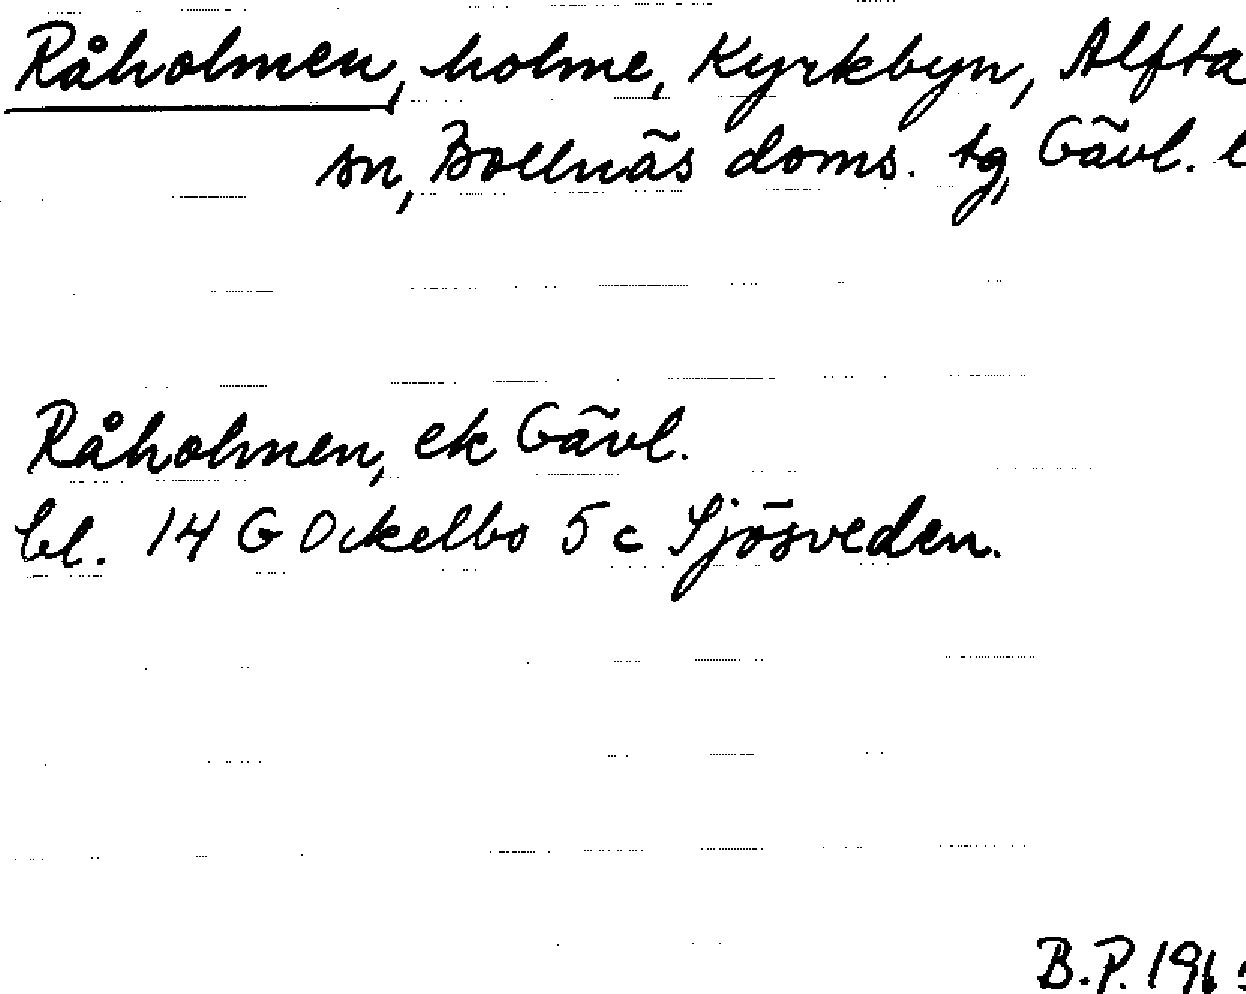 Råholmen, holme, Kyrkbyn, Alfta
sn, Bollnäs doms. tg, Gävl. l
Råholmen, ek Gävl.
bl. 14 G Ockelbo 5 c Sjösveden.
B.P. 196